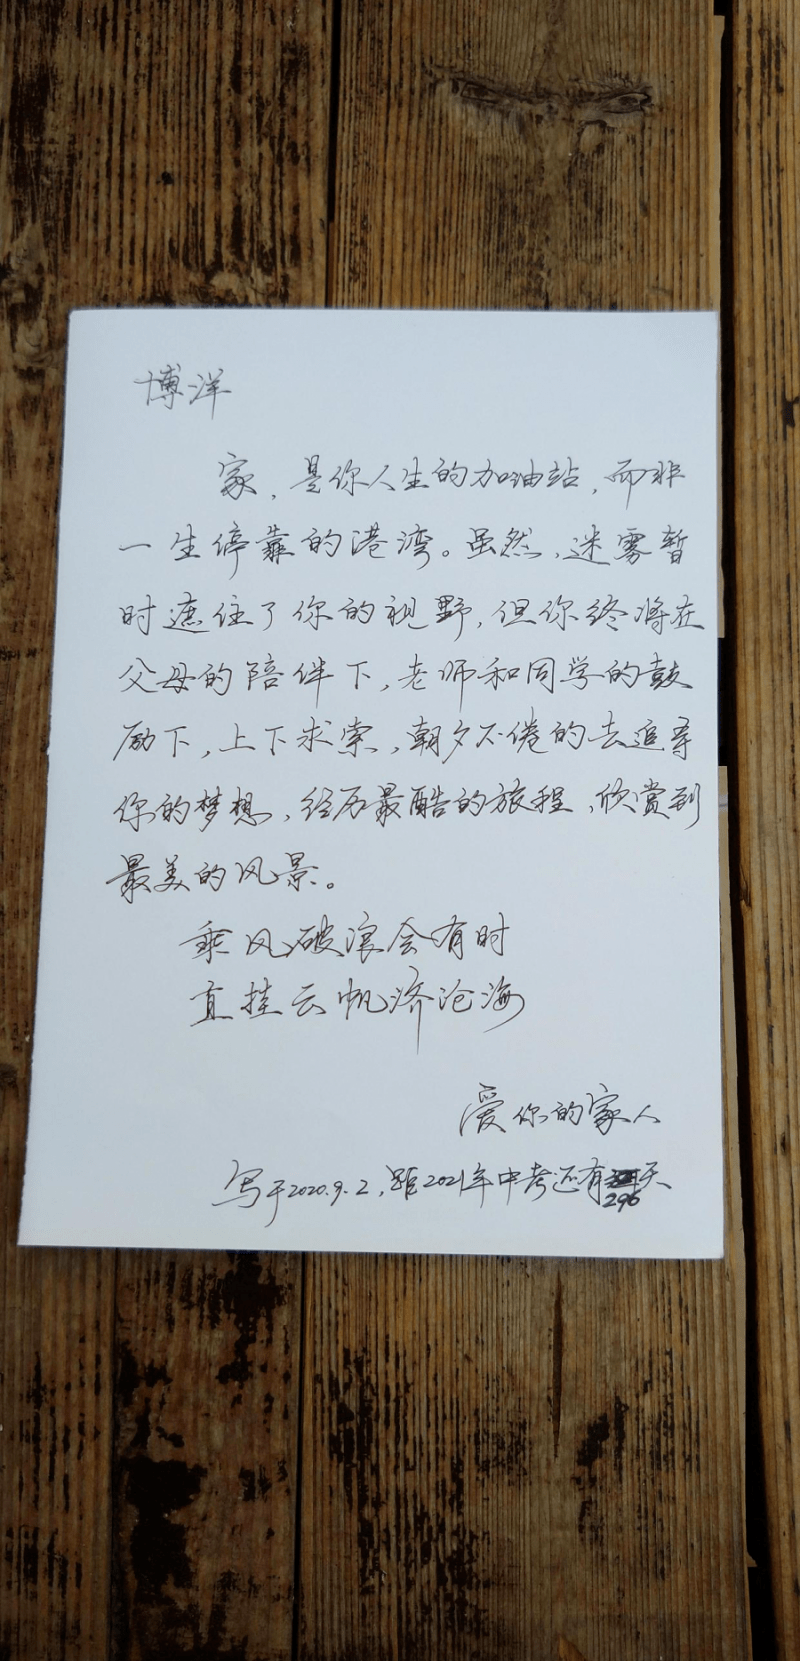 博洋
家，是你人生的加油站，而非
一生停靠的港湾。虽然，迷雾暂
时遮住了你的视野，但你终将在
父母的陪伴下，老师和同学的鼓
励下，上下求索，朝夕不倦的去追寻
你的梦想，经历最酷的旅程，欣赏到
最美的风景。
乘风破浪会有时
直挂云帆济沧海
爱你的家人
写于2020.9.2，距2021年中考还有296天